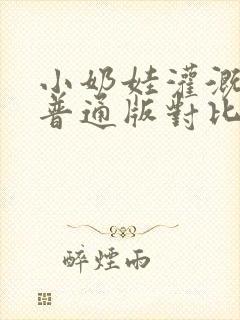 小奶娃灌溉
普通版對比
醉煙雨